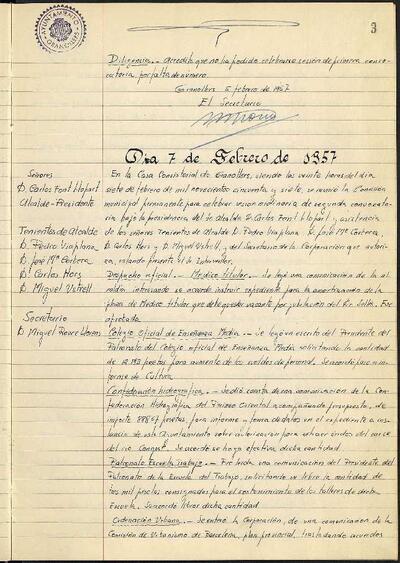 AYUNTAMIENTO
GRANOLLERS
3
Diligencia.- Acredito que no ha podido celebrarse sesión de primera convo-
catoria por falta de número.
Granollers 5 febrero de 1957
El Secretario
Dia 7 de Febrero de 1957
Señores
D. Carlos Font Llopart
Alcalde-Presidente
Tenientes de Alcalde
D. Pedro Viaplana
D. José Mª Corbera
D. Carlos Hors
D. Miguel Ustrell
Secretario
D. Miguel
En la Casa Consistorial de Granollers, siendo las veinte horas del día
siete de febrero de mil novecientos cincuenta y siete, se reunió la Comisión
municipal permanente para celebrar sesión ordinaria de segunda convoca-
toria bajo la presidencia del Sr. Alcalde D. Carlos Font Llopart y asistencia
de los señores Tenientes de Alcalde D. Pedro Viaplana, D. José Mª Corbera,
D. Carlos Hors y D. Miguel Ustrell, y del Secretario de la Corporación que autori-
za, estando presente el Sr. Interventor.
Despacho oficial.- Médico titular.- Se leyó una comunicación de la
interesando se acuerde instruir expediente para la amortización de la
plaza de Médico titular que debe quedar vacante por jubilación del Dr.
aprobada.
Colegio Oficial de Enseñanza Media.- Se leyó un escrito del Presidente del
Patronato del Colegio oficial de Enseñanza Media solicitando la cantidad
de pesetas para aumento de los sueldos de personal. Se acordó pase a in-
forme de Cultura
Confederación hidrográfica.- Se dió cuenta de una comunicación de la Con-
federación Hidrográfica del Pirineo Oriental acompañando presupuesto, de
importe pesetas para informe y toma de datos en el expediente a ins-
tancia de este Ayuntamiento sobre autorización para extraer áridos del cauce
del río Congost. Se acordó se haga efectiva dicha cantidad
Patronato Escuela Trabajo.- Fué leída una comunicación del Presidente del
Patronato de la Escuela del Trabajo, solicitando se libre la cantidad de
mil pesetas consignadas para el sostenimiento de los talleres de dicha
Escuela. Se acordó librar dicha cantidad
Ordenación Urbana.- Se enteró la Corporación, de una comunicación de la
Comisión de Urbanismo de Barcelona, plan provincial, trasladando acuerdos